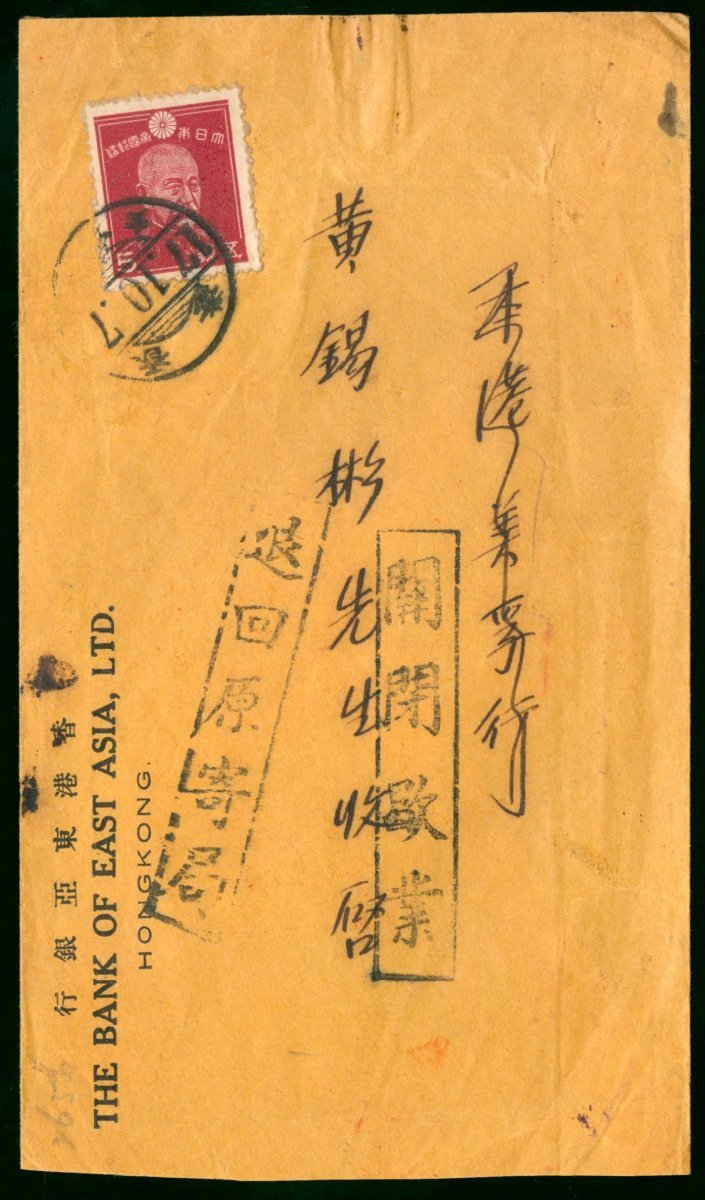 大日本帝國郵便
五
17.10.7
香
本港美寧行
黄錫彬先生收啓
關閉歇業
退回原寄局
香港東亞銀行
THE BANK OF EAST ASIA, LTD.
HONGKONG.